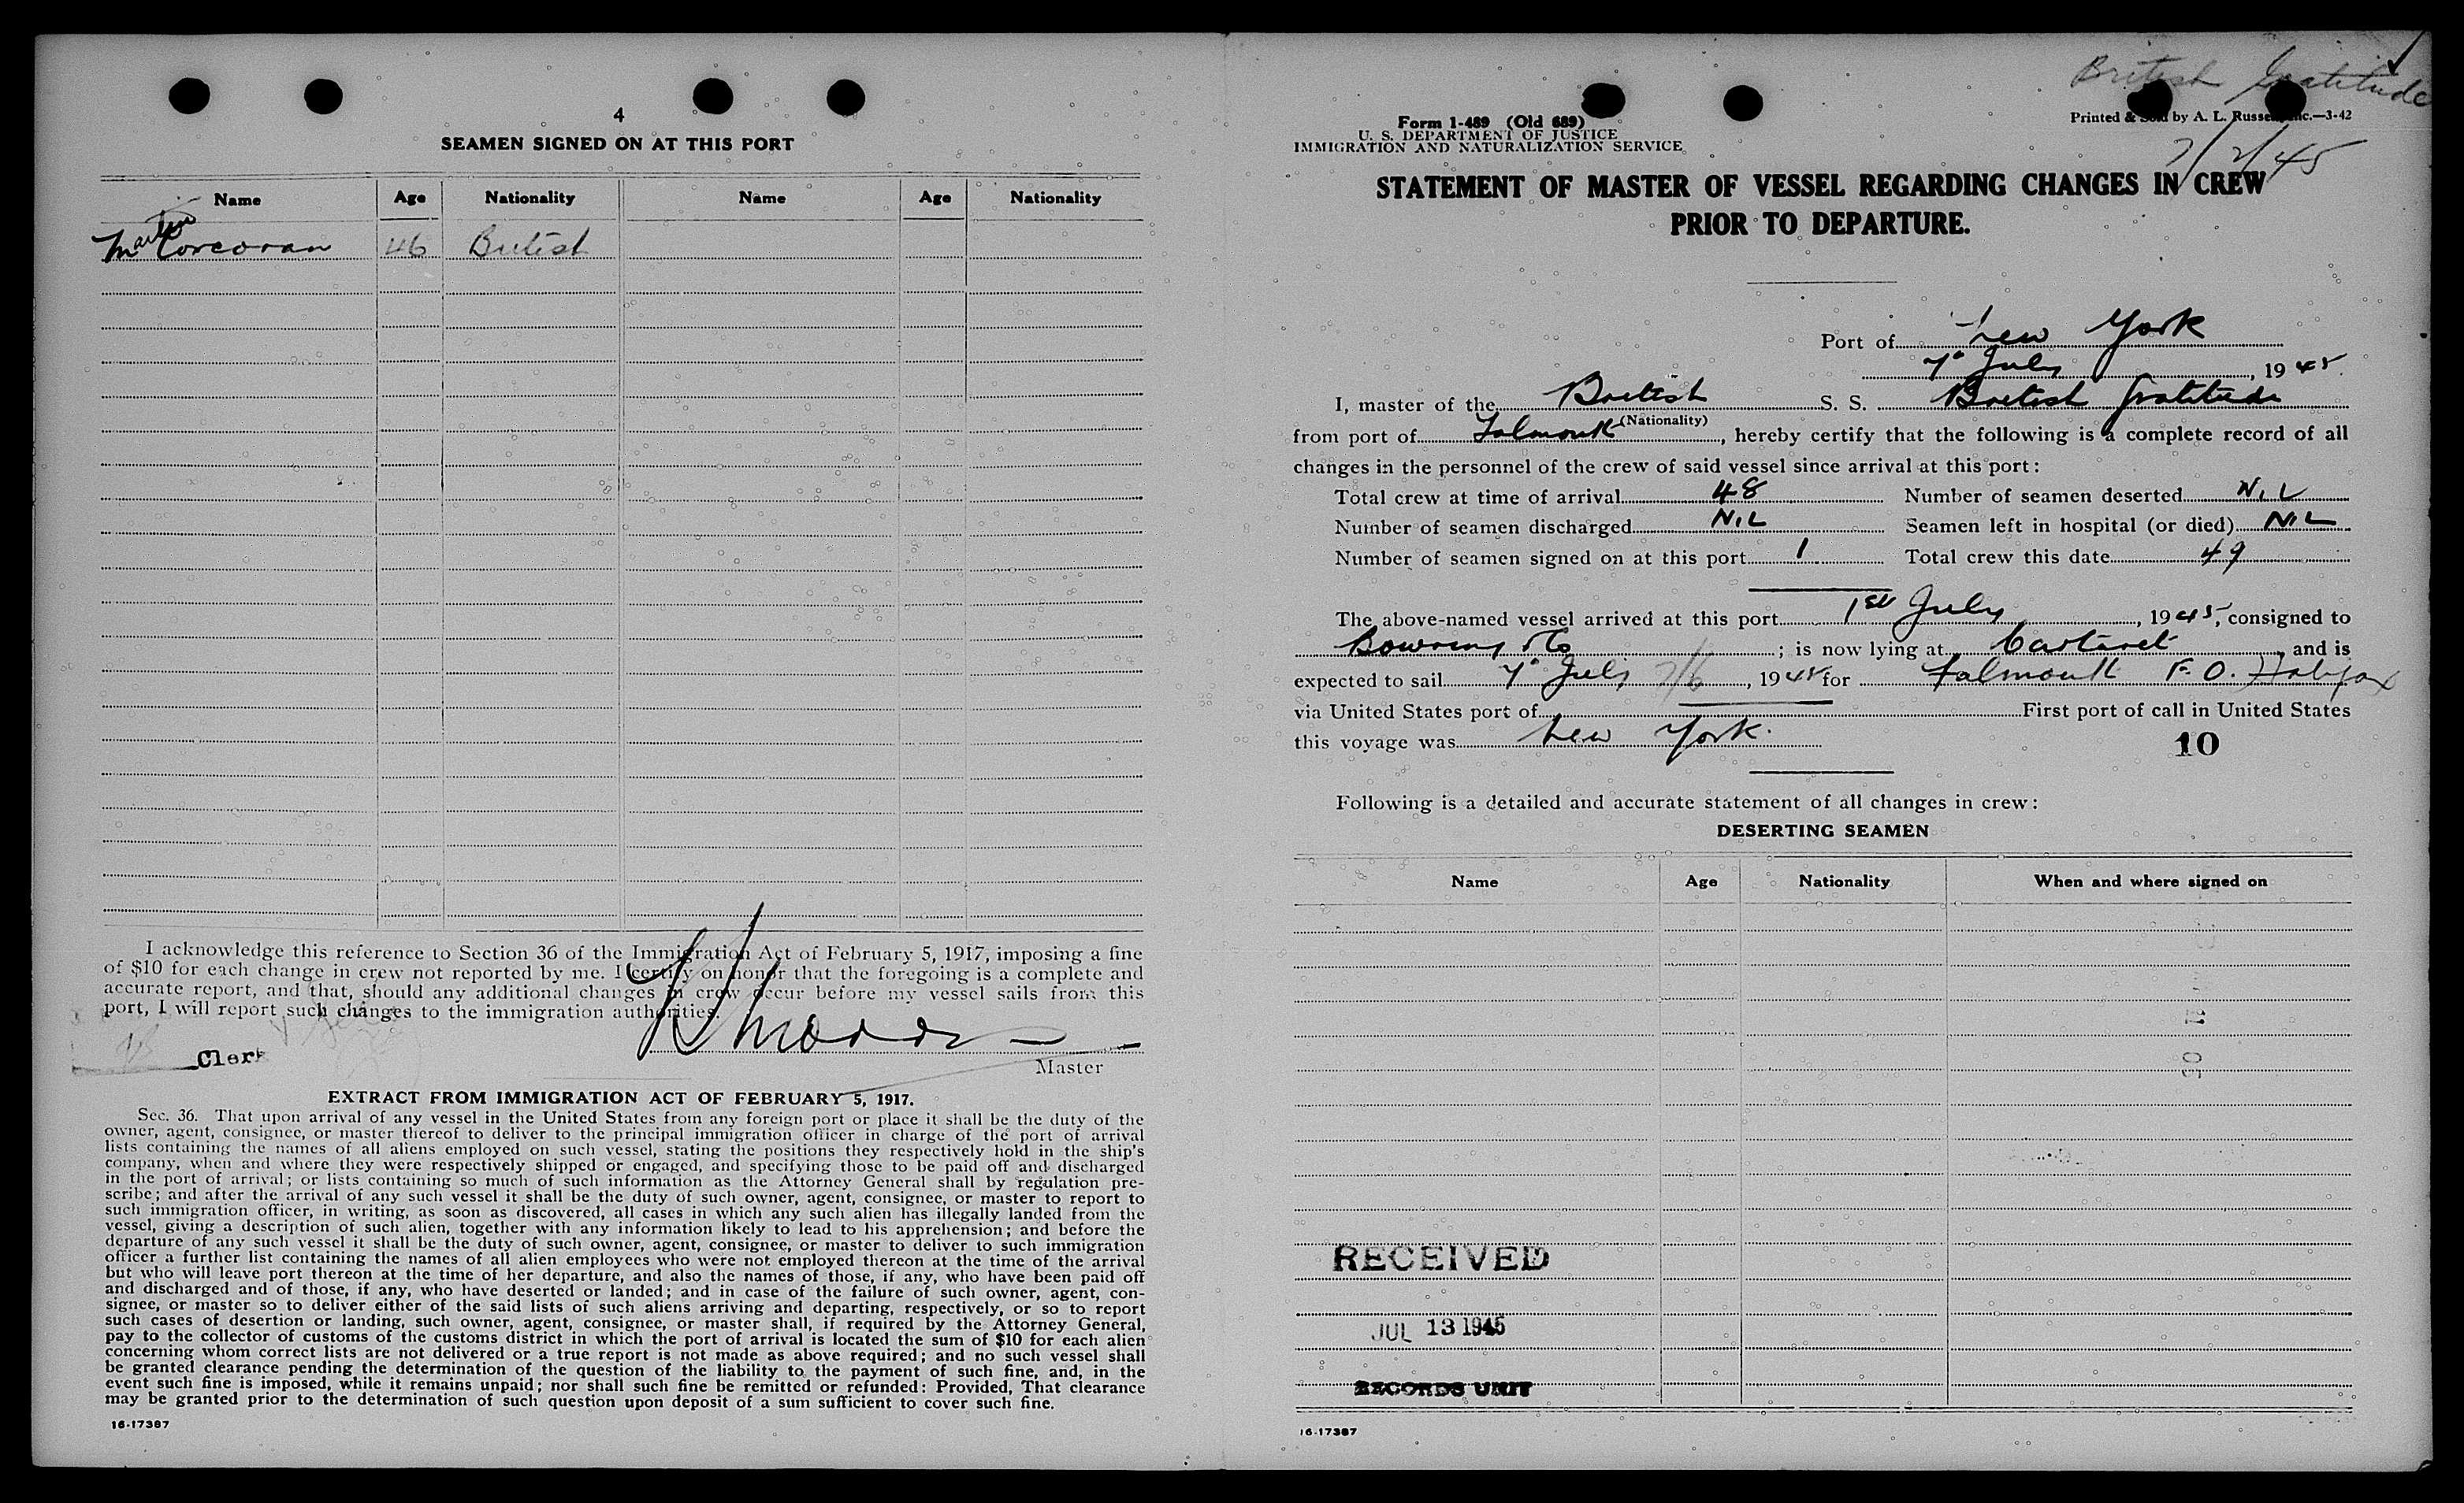 4
SEAMEN SIGNED ON AT THIS PORT
Name Age Nationality Name Age Nationality
Martin
M Corcoran 46 British
I acknowledge this reference to Section 36 of the Immigration Act of February 5, 1917, imposing a fine
of $10 for each change in crew not reported by me. I certify on honor that the foregoing is a complete and
accurate report, and that, should any additional changes in crew occur before my vessel sails from this
port, I will report such changes to the immigration authorities.
Clerk
Master
EXTRACT FROM IMMIGRATION ACT OF FEBRUARY 5, 1917.
Sec. 36. That upon arrival of any vessel in the United States from any foreign port or place it shall be the duty of the
owner, agent, consignee, or master thereof to deliver to the principal immigration officer in charge of the port of arrival
lists containing the names of all aliens employed on such vessel, stating the positions they respectively hold in the ship's
company, when and where they were respectively shipped or engaged, and specifying those to be paid off and discharged
in the port of arrival; or lists containing so much of such information as the Attorney General shall by regulation pre-
scribe; and after the arrival of any such vessel it shall be the duty of such owner, agent, consignee, or master to report to
such immigration officer, in writing, as soon as discovered, all cases in which any such alien has illegally landed from the
vessel, giving a description of such alien, together with any information likely to lead to his apprehension; and before the
departure of any such vessel it shall be the duty of such owner, agent, consignee, or master to deliver to such immigration
officer a further list containing the names of all alien employees who were not employed thereon at the time of the arrival
but who will leave port thereon at the time of her departure, and also the names of those, if any, who have been paid off
and discharged and of those, if any, who have deserted or landed; and in case of the failure of such owner, agent, con-
signee, or master so to deliver either of the said lists of such aliens arriving and departing, respectively, or so to report
such cases of desertion or landing, such owner, agent, consignee, or master shall, if required by the Attorney General,
pay to the collector of customs of the customs district in which the port of arrival is located the sum of $10 for each alien
concerning whom correct lists are not delivered or a true report is not made as above required; and no such vessel shall
be granted clearance pending the determination of the question of the liability to the payment of such fine, and, in the
event such fine is imposed, while it remains unpaid; nor shall such fine be remitted or refunded: Provided, That clearance
may be granted prior to the determination of such question upon deposit of a sum sufficient to cover such fine.
16-17387
British Gratitude
Form 1-489 (Old 689)
Printed & Sold by A. L. Russell, Inc.—3-42
U. S. DEPARTMENT OF JUSTICE
IMMIGRATION AND NATURALIZATION SERVICE
7/2/45
STATEMENT OF MASTER OF VESSEL REGARDING CHANGES IN CREW
PRIOR TO DEPARTURE.
Port of New York
7° July, 1945.
I, master of the British S. S. British Gratitude
(Nationality)
from port of Falmouth, hereby certify that the following is a complete record of all
changes in the personnel of the crew of said vessel since arrival at this port:
Total crew at time of arrival 48 Number of seamen deserted NIL
Number of seamen discharged NIL Seamen left in hospital (or died) NIL
Number of seamen signed on at this port 1 Total crew this date 49
The above-named vessel arrived at this port 1st July, 1945, consigned to
Bowring & Co; is now lying at Carteret and is
expected to sail 7° July 7/6, 1945 for Falmouth F.O. Halifax
via United States port of First port of call in United States
this voyage was New York.
10
Following is a detailed and accurate statement of all changes in crew:
DESERTING SEAMEN
Name Age Nationality When and where signed on
RECEIVED
JUL 13 1945
RECORDS UNIT
16-17387